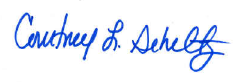 Courtney L. Scheltz